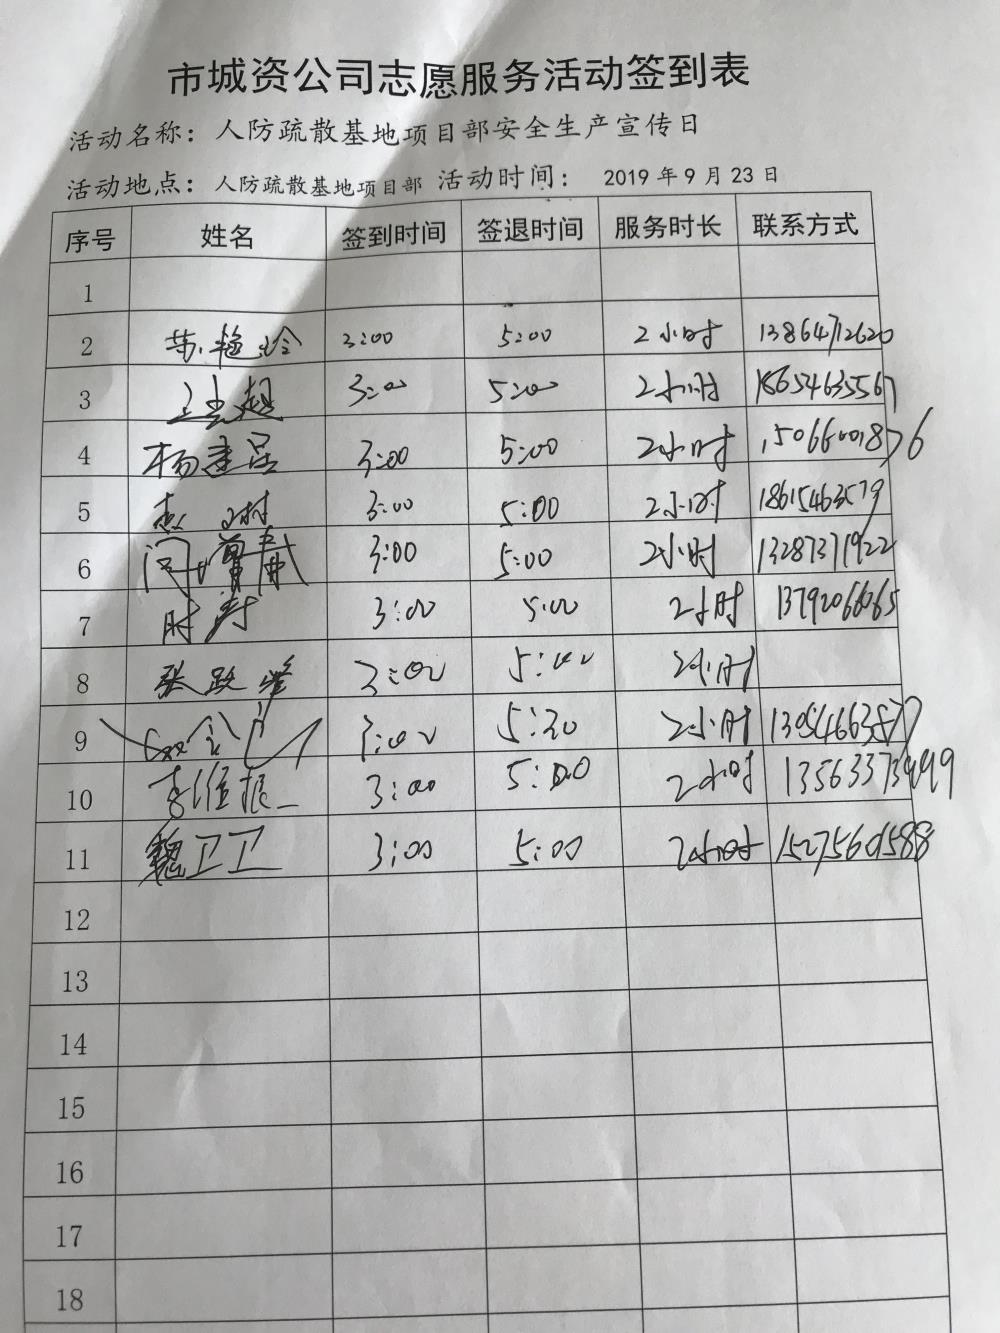 市城资公司志愿服务活动签到表
活动名称：人防疏散基地项目部安全生产宣传日
活动地点：人防疏散基地项目部 活动时间： 2019 年 9 月 23 日
序号 姓名 签到时间 签退时间 服务时长 联系方式
1
2 3:00 5:00 2小时 13864712620
3 3:00 5:00 2小时 18654635567
4 杨建 3:00 5:00 2小时
5 3:00 5:00 2小时 18615463579
6 3:00 5:00 2小时 13287371922
7 时 3:00 5:00 2小时 13792066065
8 张 3:00 5:00 2小时
9 3:00 5:30 2小时
10 李维振 3:00 5:00 2小时
11 魏卫卫 3:00 5:00 2小时 15275601588
12
13
14
15
16
17
18